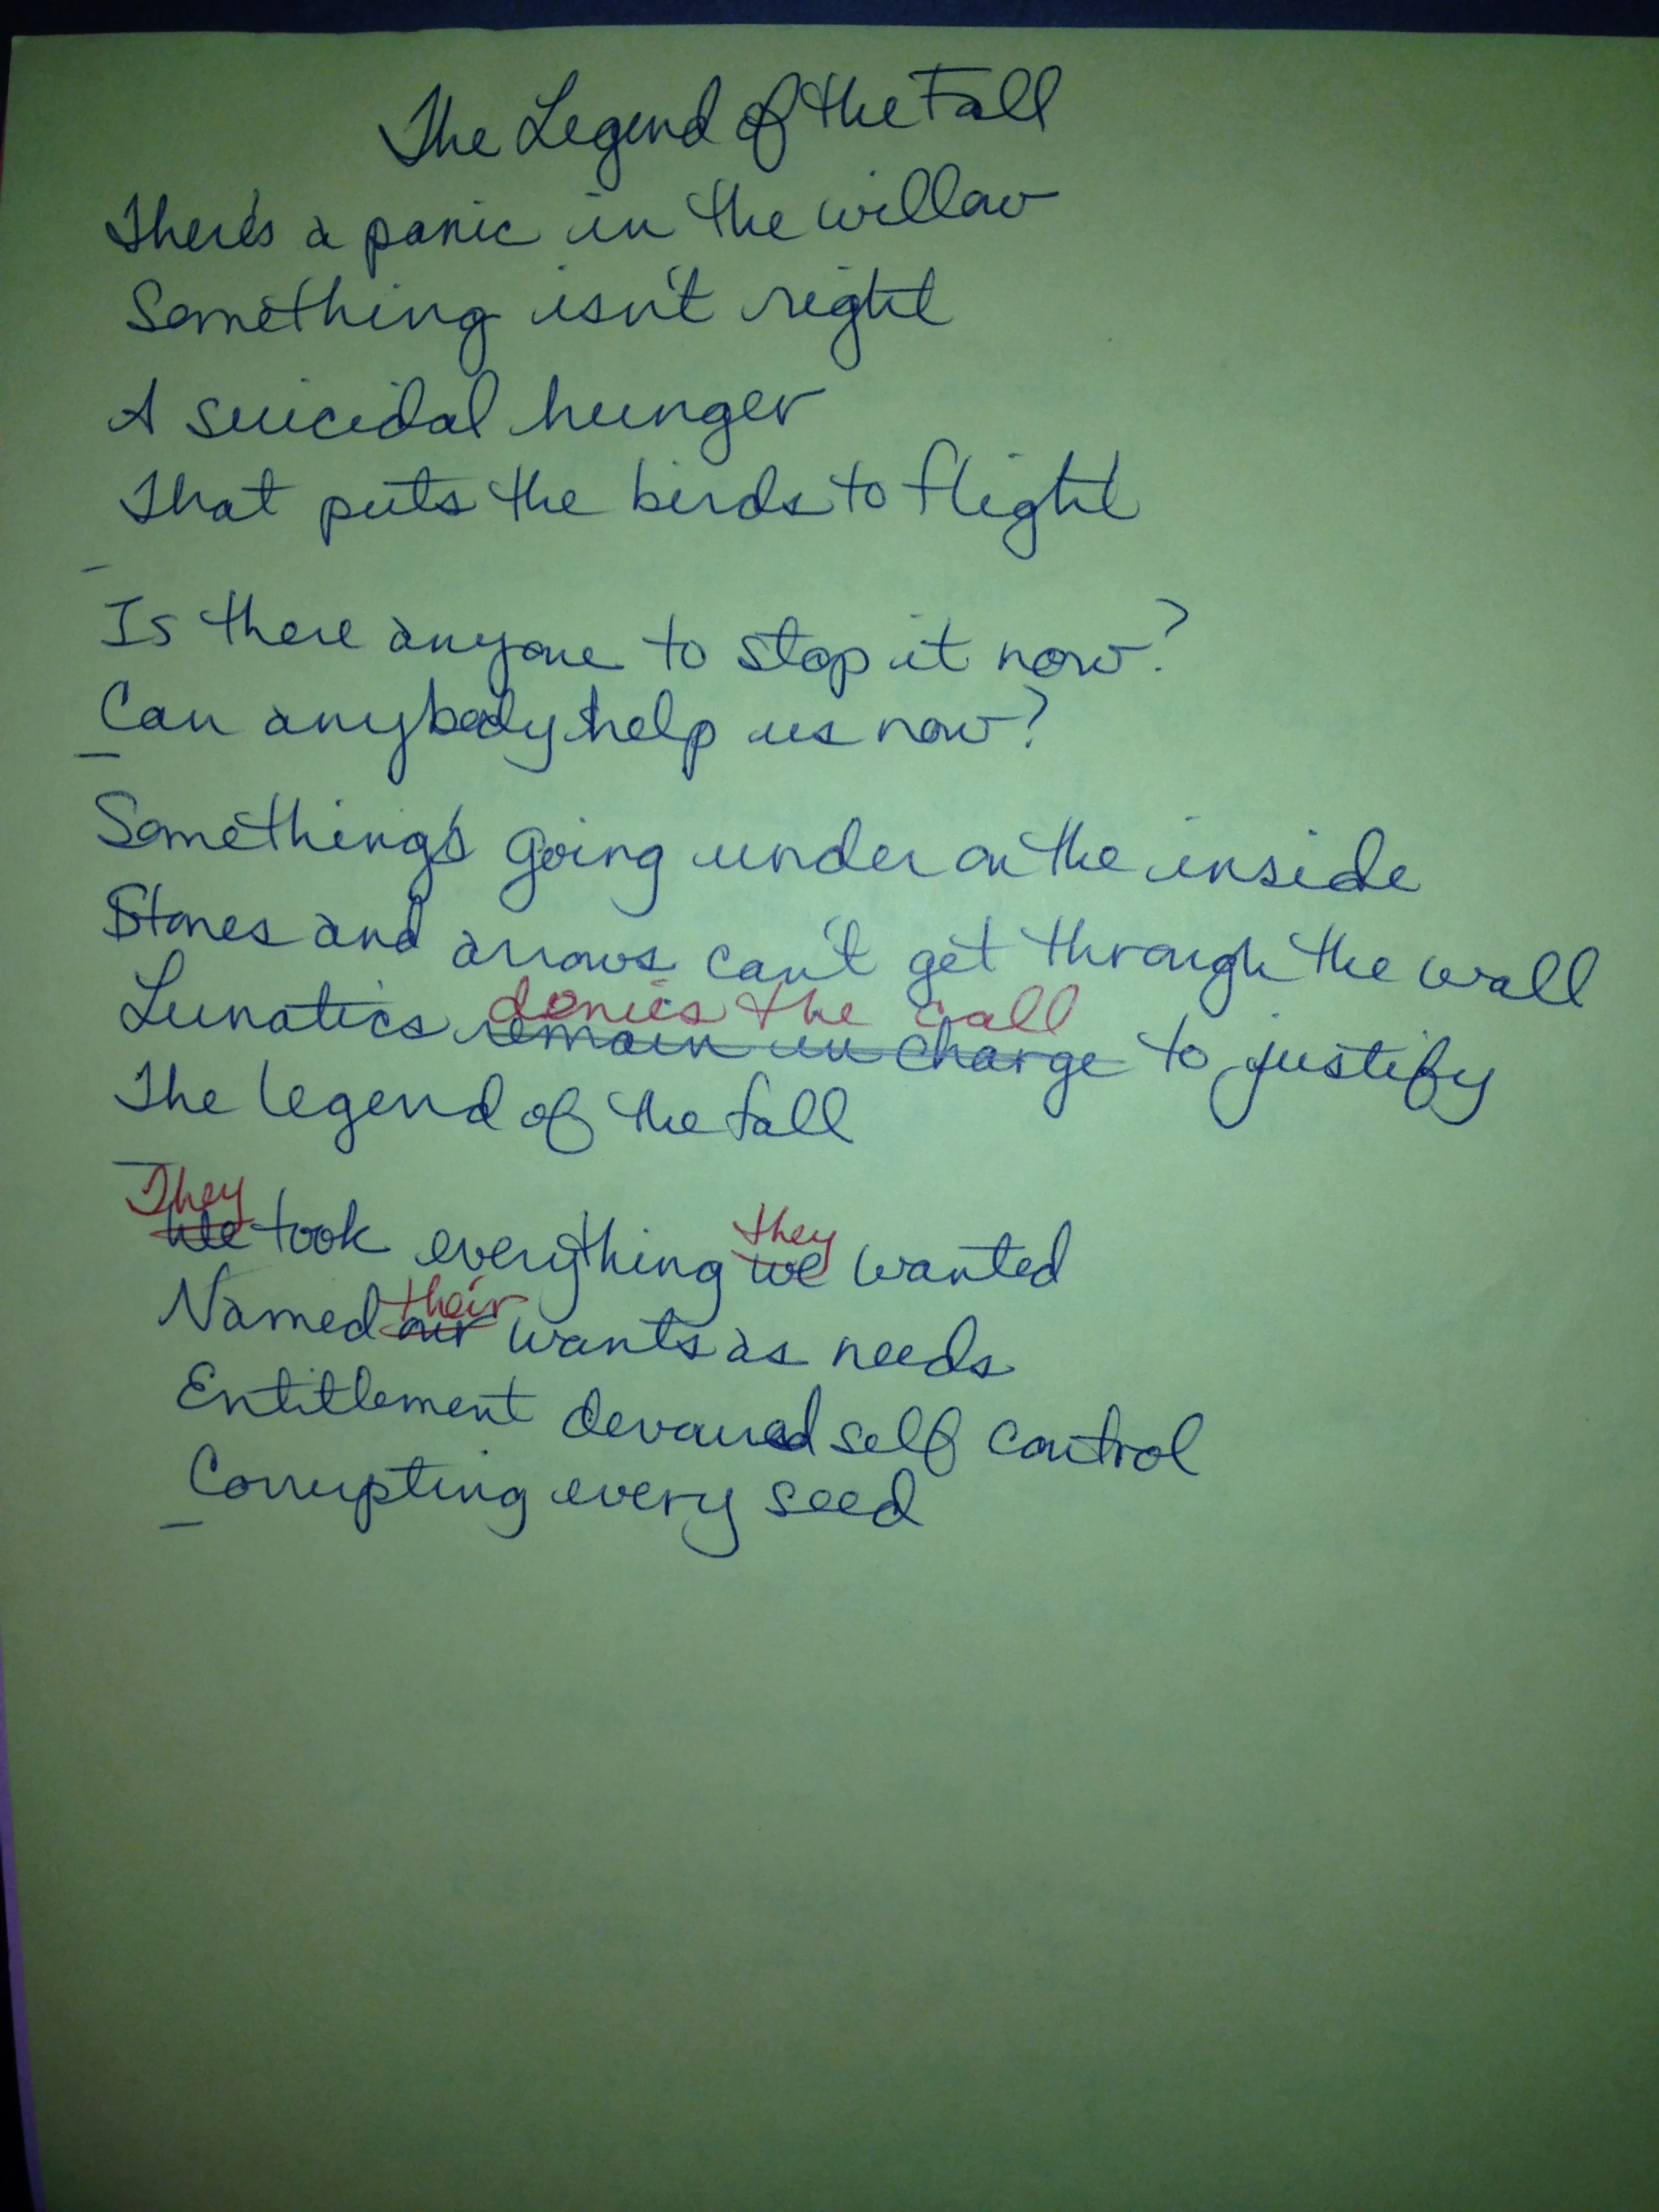 The Legend of the Fall
There's a panic in the willow
Something isn't right
A suicidal hunger
That puts the birds to flight
Is there anyone to stop it now?
Can anybody help us now?
Something's going under on the inside
Stones and arrows can't get through the wall
denies the call
Lunatics remain in charge to justify
The legend of the fall
They they
We took everything we wanted
their
Named our wants as needs
Entitlement devoured self control
Corrupting every seed